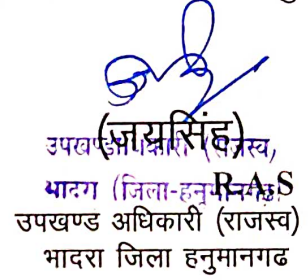 (जयसिंह)
उपखण्ड अधिकारी (राजस्व)
भादरा (जिला-हनुमानगढ़)
R.A.S
उपखण्ड अधिकारी (राजस्व)
भादरा जिला हनुमानगढ